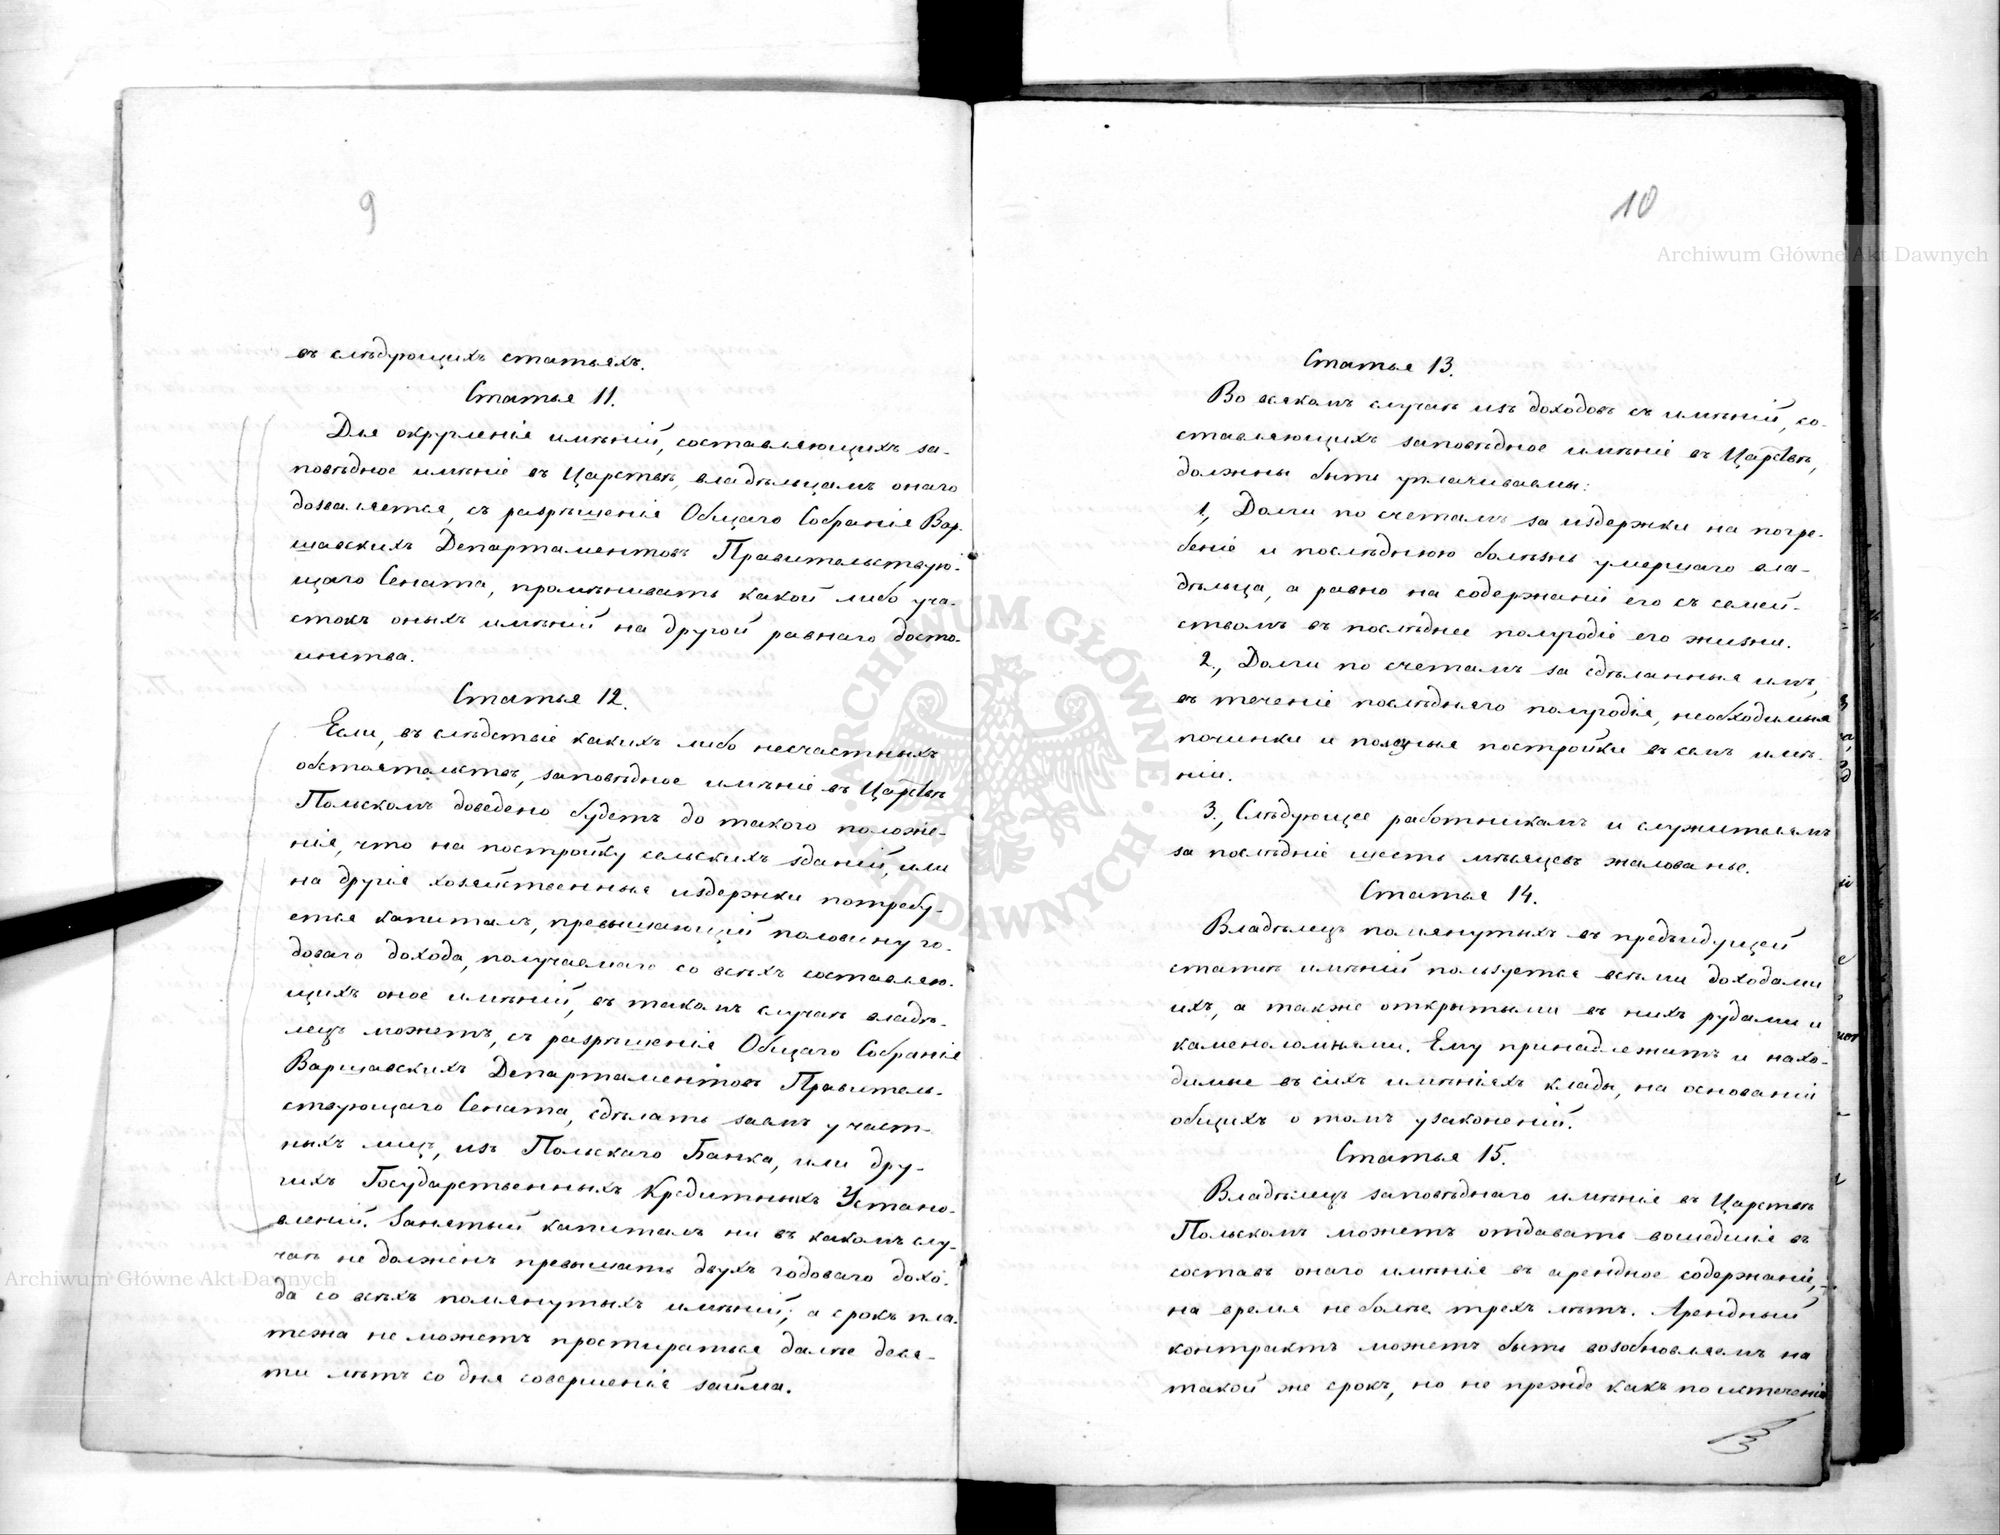 9
въ слѣдующихъ статьяхъ.
Статья 11.
Для округленія имѣній, составляющихъ за-
повѣдное имѣніе въ Царствѣ, владѣльцамъ онаго
дозваляется, съ разрѣшенія Общаго Собранія Вар-
шавскихъ Департаментовъ Правительствую-
щаго Сената, промѣнивать какой либо уча-
стокъ оныхъ имѣній на другой равнаго досто-
инства.
Статья 12.
Если, въ слѣдствіе какихъ либо несчастныхъ
обстоятельствъ, заповѣдное имѣніе въ Царствѣ
Польскомъ доведено будетъ до такого положе-
нія, что на постройку сельскихъ зданій, или
на другія хозяйственныя издержки потребу-
ется капиталъ, превышающій половину го-
доваго дохода, получаемаго со всѣхъ составляю-
щихъ оное имѣній, въ такомъ случаѣ владѣ-
лецъ можетъ, съ разрѣшенія Общаго Собранія
Варшавскихъ Департаментовъ Правитель-
ствующаго Сената, сдѣлать заемъ у част-
ныхъ лицъ, изъ Польскаго Банка, или дру-
гихъ Государственныхъ Кредитныхъ Устано-
вленій. Занятый капиталъ ни въ какомъ слу-
чаѣ не долженъ превышать двухъ годоваго дохо-
да со всѣхъ помянутыхъ имѣній; а срокъ пла-
тежа не можетъ простираться далѣе девя-
ти лѣтъ со дня совершенія займа.
10
Статья 13.
Во всякомъ случаѣ изъ доходовъ съ имѣній, со-
ставляющихъ заповѣдное имѣніе въ Царствѣ,
должны быть уплачиваемы:
1, Долги по счетамъ за издержки на погре-
беніе и послѣднюю болѣзнь умершаго вла-
дѣльца, а равно на содержаніе его съ семей-
ствомъ въ послѣднее полугодіе его жизни.
2., Долги по счетамъ за сдѣланныя имъ,
въ теченіе послѣдняго полугодія, необходимыя
починки и полезныя постройки въ семъ имѣ-
ніи.
3., Слѣдующее работникамъ и служителямъ
за послѣдніе шесть мѣсяцевъ жалованье.
Статья 14.
Владѣлецъ помянутыхъ въ предъидущей
статьѣ имѣній пользуется всѣми доходами
ихъ, а также открытыми въ нихъ рудами и
каменоломнями. Ему принадлежатъ и нахо-
димые въ сихъ имѣніяхъ клады, на основаніи
общихъ о томъ узаконеній.
Статья 15.
Владѣлецъ заповѣднаго имѣнія въ Царствѣ
Польскомъ можетъ отдавать вошедшія въ
составъ онаго имѣнія въ арендное содержаніе,
на время не болѣе трехъ лѣтъ. Арендный
контрактъ можетъ быть возобновляемъ на
такой же срокъ, но не прежде какъ по истеченіи
Archiwum Główne Akt Dawnych
Archiwum Główne Akt Dawnych
ARCHIWUM GŁÓWNE AKT DAWNYCH